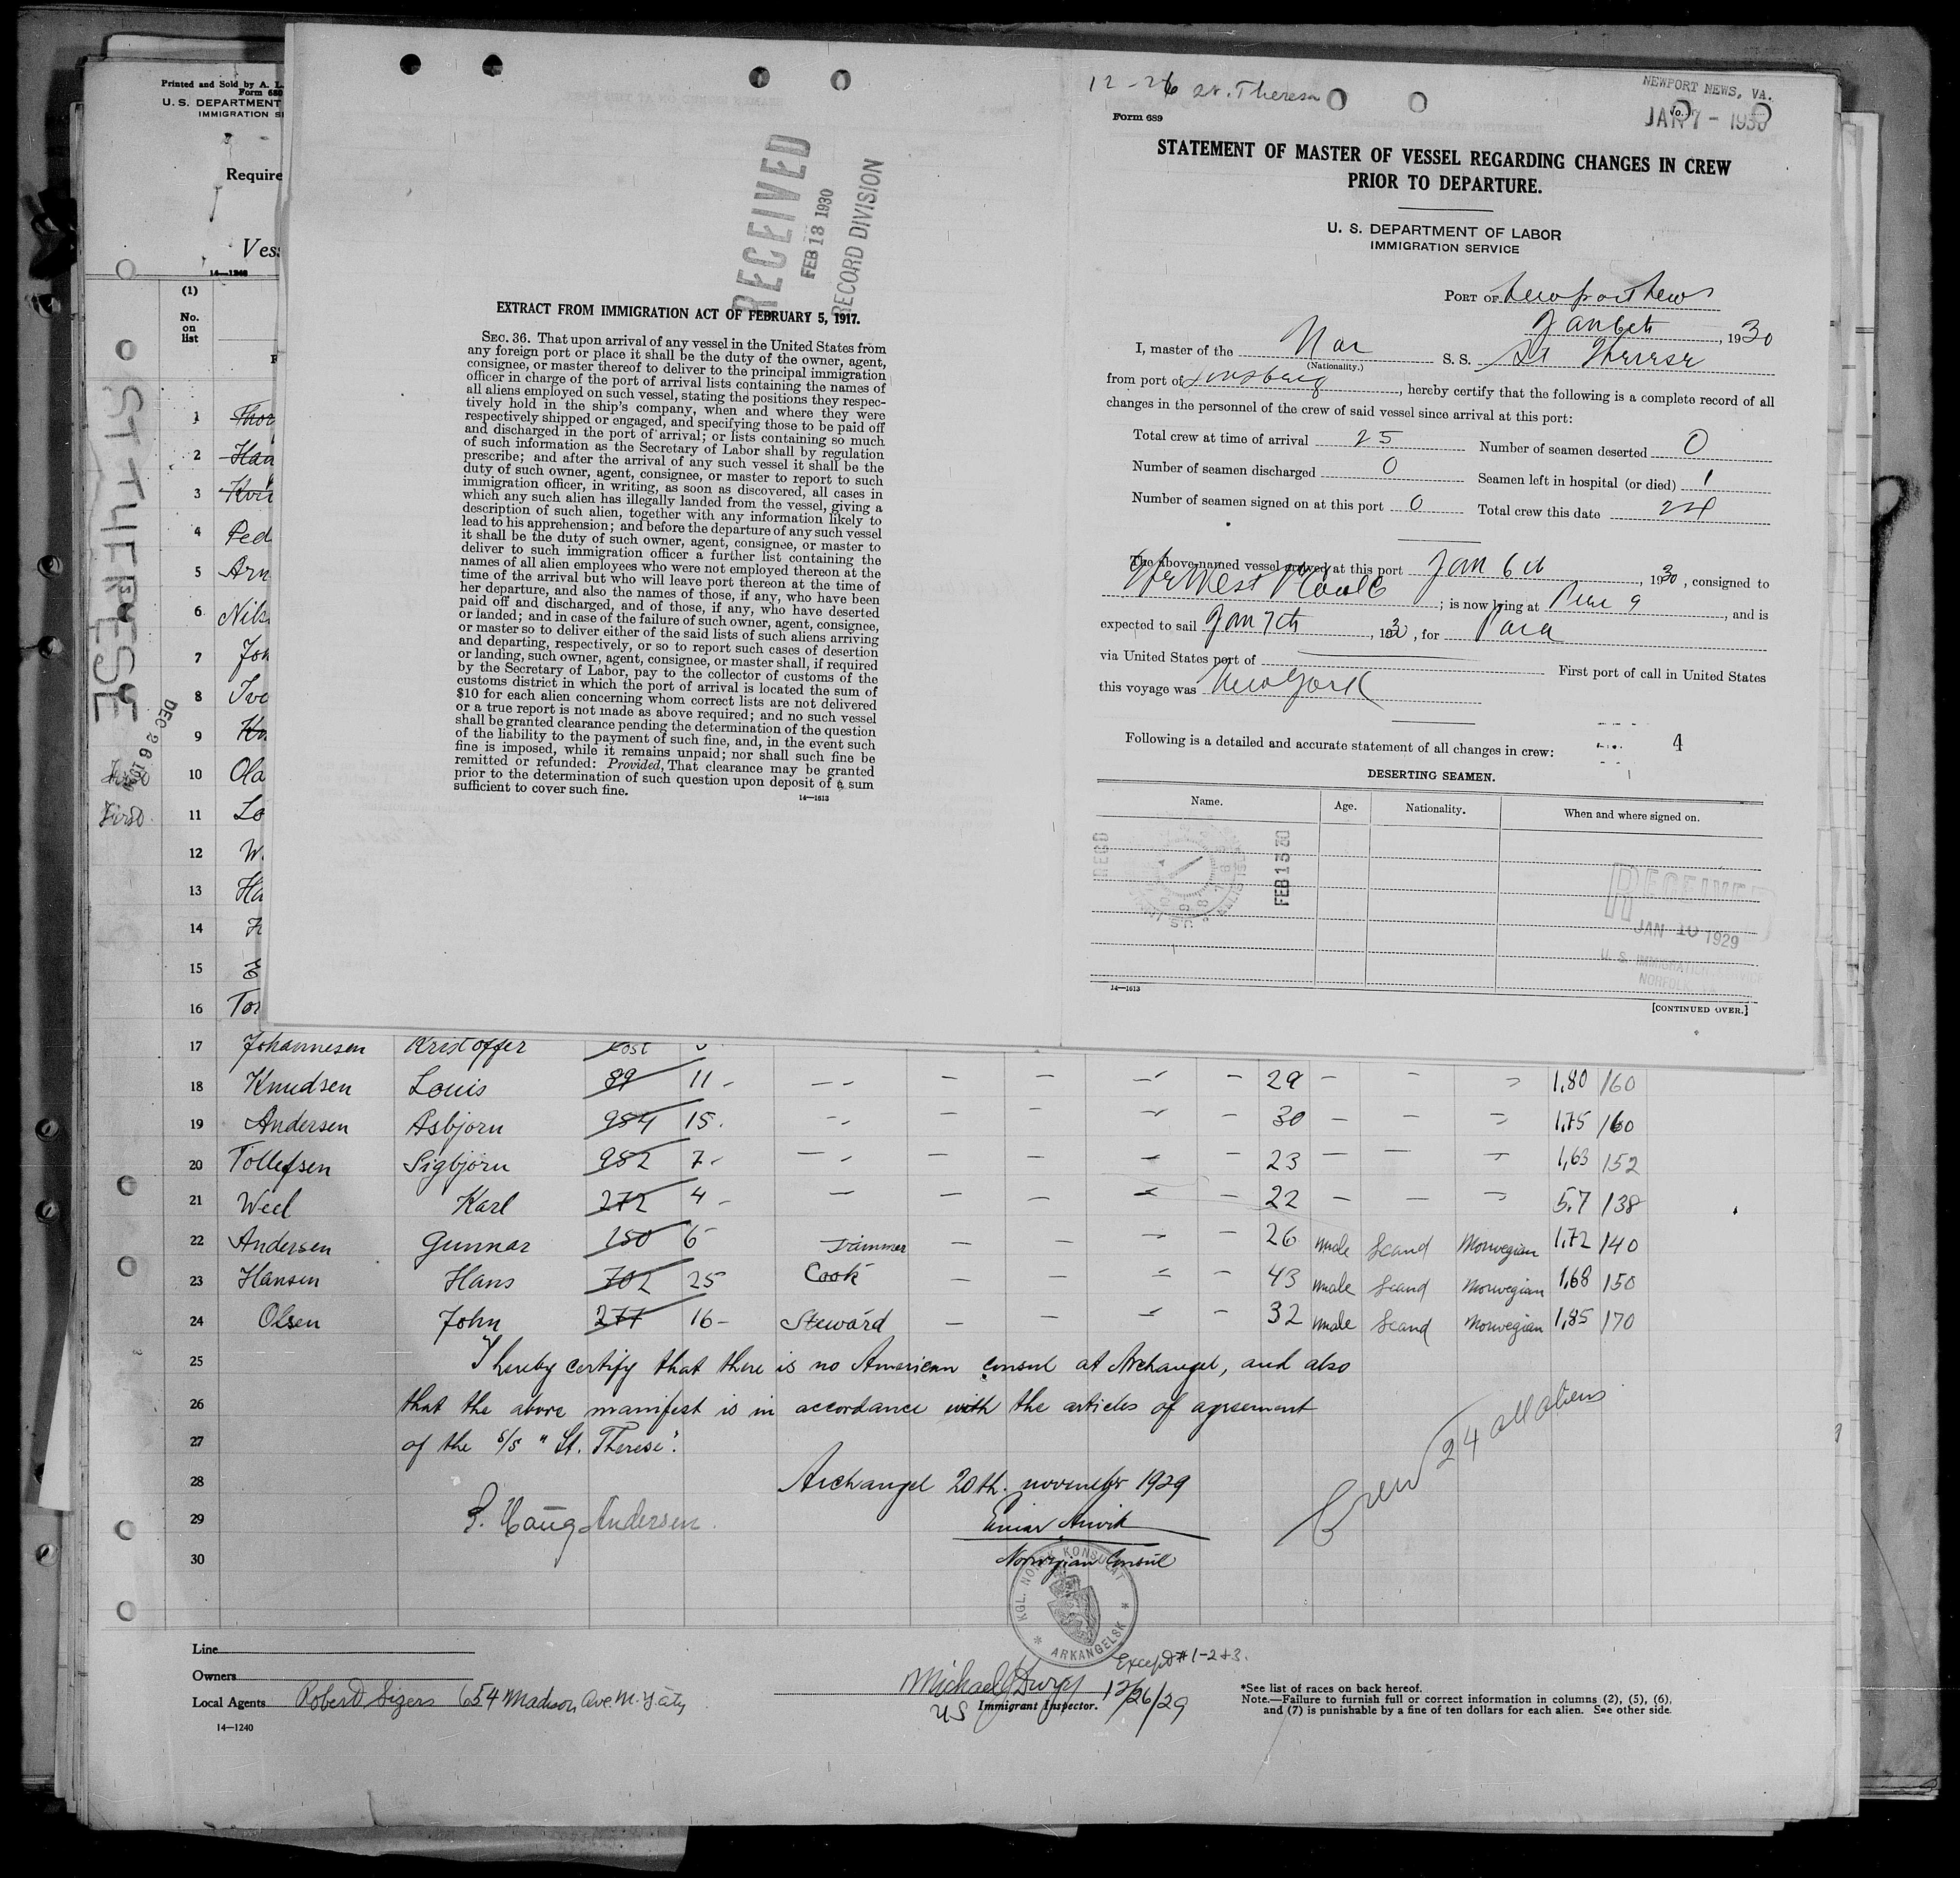 Printed and Sold by A. L.
Form 680
U. S. DEPARTMENT
IMMIGRATION S
Require
Vess
14—1240
(1)
No.
on
list
ST THERESE
DEC 26
1 Thor
2 Han
3
4 Ped
5 Arn
6 Nils
7 Joh
8 Ive
9
10 Ola
First 11 Lo
12 W
13 Ha
14
15
16 Tor
RECEIVED
FEB 18 1930
RECORD DIVISION
EXTRACT FROM IMMIGRATION ACT OF FEBRUARY 5, 1917.
SEC. 36. That upon arrival of any vessel in the United States from
any foreign port or place it shall be the duty of the owner, agent,
consignee, or master thereof to deliver to the principal immigration
officer in charge of the port of arrival lists containing the names of
all aliens employed on such vessel, stating the positions they respec-
tively hold in the ship's company, when and where they were
respectively shipped or engaged, and specifying those to be paid off
and discharged in the port of arrival; or lists containing so much
of such information as the Secretary of Labor shall by regulation
prescribe; and after the arrival of any such vessel it shall be the
duty of such owner, agent, consignee, or master to report to such
immigration officer, in writing, as soon as discovered, all cases in
which any such alien has illegally landed from the vessel, giving a
description of such alien, together with any information likely to
lead to his apprehension; and before the departure of any such vessel
it shall be the duty of such owner, agent, consignee, or master to
deliver to such immigration officer a further list containing the
names of all alien employees who were not employed thereon at the
time of the arrival but who will leave port thereon at the time of
her departure, and also the names of those, if any, who have been
paid off and discharged, and of those, if any, who have deserted
or landed; and in case of the failure of such owner, agent, consignee,
or master so to deliver either of the said lists of such aliens arriving
and departing, respectively, or so to report such cases of desertion
or landing, such owner, agent, consignee, or master shall, if required
by the Secretary of Labor, pay to the collector of customs of the
customs district in which the port of arrival is located the sum of
$10 for each alien concerning whom correct lists are not delivered
or a true report is not made as above required; and no such vessel
shall be granted clearance pending the determination of the question
of the liability to the payment of such fine, and, in the event such
fine is imposed, while it remains unpaid; nor shall such fine be
remitted or refunded: Provided, That clearance may be granted
prior to the determination of such question upon deposit of a sum
sufficient to cover such fine.
14—1613
12-26 St. Therese
NEWPORT NEWS, VA.
JAN 7 - 1930
Form 689
STATEMENT OF MASTER OF VESSEL REGARDING CHANGES IN CREW
PRIOR TO DEPARTURE.
U. S. DEPARTMENT OF LABOR
IMMIGRATION SERVICE
PORT OF Newport News
Jan 6th, 1930
I, master of the Nor S. S. St Therese
(Nationality.)
from port of Tonsberg, hereby certify that the following is a complete record of all
changes in the personnel of the crew of said vessel since arrival at this port:
Total crew at time of arrival 25 Number of seamen deserted 0
Number of seamen discharged 0 Seamen left in hospital (or died) 1
Number of seamen signed on at this port 0 Total crew this date 24
The above-named vessel arrived at this port Jan 6th, 1930, consigned to
; is now lying at Pier 9, and is
expected to sail Jan 7th, 1930, for Para
via United States port of First port of call in United States
this voyage was New York
Following is a detailed and accurate statement of all changes in crew: 4
DESERTING SEAMEN.
Name. Age. Nationality. When and where signed on.
RECD
FEB 13 30
RECEIVED
JAN 10 1929
U. S. IMMIGRATION SERVICE
NORFOLK
14—1613
[CONTINUED OVER.]
17 Johannesen Kristoffer
18 Knudsen Louis 89 11 - — - — — — — 29 — — — 1,80 160
19 Andersen Asbjorn 984 15 - — — — — 30 — — — 1,75 160
20 Tollefsen Sigbjorn 982 7 - — - — — — — 23 — — — 1,63 152
21 Weel Karl 272 4 - — — — — — 22 — — — 5.7 138
22 Andersen Gunnar 150 6 Trimmer — — — — 26 male Scand Norwegian 1,72 140
23 Hansen Hans 702 25 Cook — — — — 43 male Scand Norwegian 1,68 150
24 Olsen John 277 16 - Steward — — — — 32 male Scand Norwegian 1,85 170
25 I hereby certify that there is no American consul at Archangel, and also
26 that the above manifest is in accordance with the articles of agreement
27 of the s/s "St. Therese".
Crew 24 all aliens
28 Archangel 20th. november 1929
29 Haug Andersen. Einar
30 Norwegian Consul
KGL. NORSK KONSULAT * ARKANGELSK *
Line
Owners
Except # 1-2+3.
Local Agents Robert Sizers 654 Madison Ave. N. Y. City
Michael J
US Immigrant Inspector. 12/26/29
*See list of races on back hereof.
Note.—Failure to furnish full or correct information in columns (2), (5), (6),
and (7) is punishable by a fine of ten dollars for each alien. See other side.
14—1240